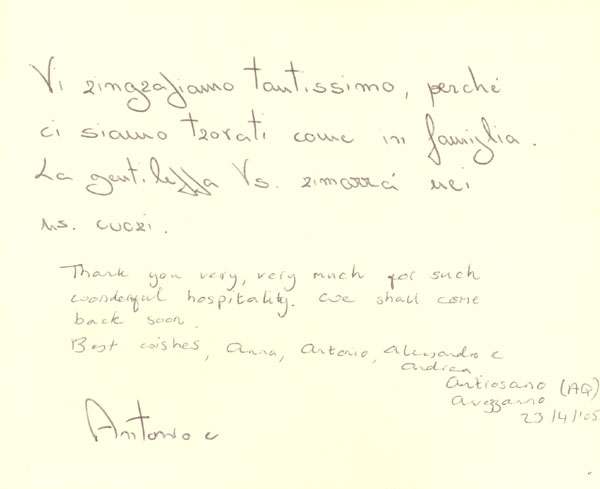 Vi ringraziamo tantissimo, perché
ci siamo trovati come in famiglia.
La gentilezza Vs. rimarrá nei
ns. cuori.
Thank you very, very much for such
wonderful hospitality. We shall come
back soon.
Best wishes, Anna, Antonio, Alessandro e
Andrea
Antrosano (AQ)
Avezzano
23/4/'05
Antonio e